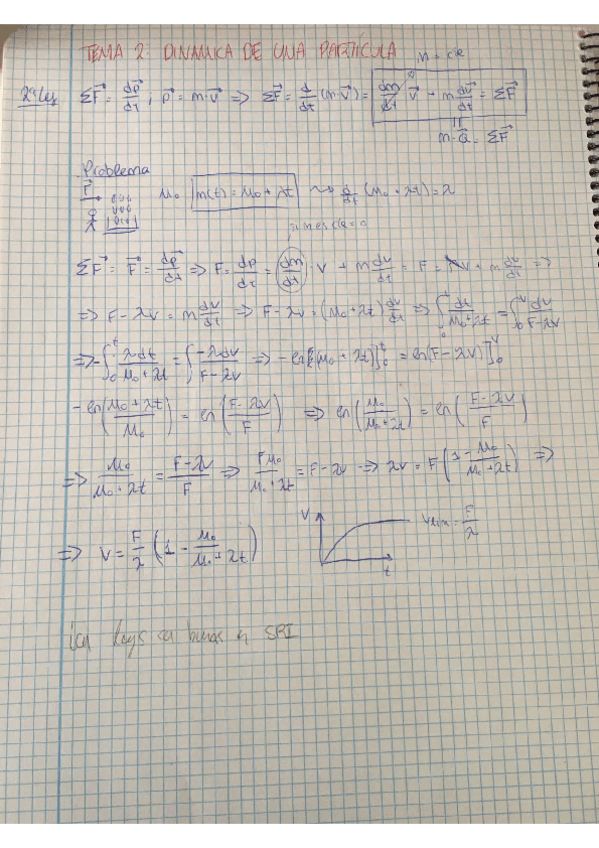 TEMA 2: DINAMICA DE UNA PARTÍCULA
m = cte
2ª Ley ΣF⃗ = dp⃗/dt ; p⃗ = m·v⃗ ⇒ ΣF⃗ = d/dt (m·v⃗) = dm/dt v⃗ + m dv⃗/dt = ΣF⃗
0
m·a⃗ = ΣF⃗
Problema
F⃗ M₀ m(t) = M₀ + λt ⇝ d/dt (M₀ + λt) = λ
ΣF⃗ = F⃗ = dp⃗/dt ⇒ F = dp/dt = dm/dt · v + m dv/dt = F = λv + m dv/dt ⇒
⇒ F - λv = m dv/dt ⇒ F - λv = (M₀ + λt) dv/dt ⇒ ∫₀ᵗ dt/(M₀ + λt) = ∫₀ᵛ dv/(F - λv)
⇒ -∫₀ᵗ λdt/(M₀ + λt) = ∫ -λdv/(F - λv) ⇒ -ln[(M₀ + λt)]₀ᵗ = ln(F - λv)]₀ᵛ
-ln((M₀ + λt)/M₀) = ln((F - λv)/F) ⇒ ln(M₀/(M₀ + λt)) = ln((F - λv)/F)
⇒ M₀/(M₀ + λt) = (F - λv)/F ⇒ FM₀/(M₀ + λt) = F - λv ⇒ λv = F(1 - M₀/(M₀ + λt)) ⇒
⇒ v = F/λ (1 - M₀/(M₀ + λt))
V
t
Vlim = F/λ
SRI